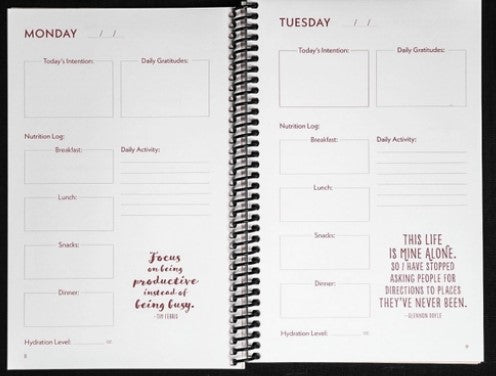 MONDAY / /
Today's Intention: Daily Gratitudes:
Nutrition Log:
Breakfast: Daily Activity:
Lunch:
Snacks:
Focus
on being
productive
instead of
being busy.
-TIM FERRIS
Dinner:
Hydration Level: oz
8
TUESDAY / /
Today's Intention: Daily Gratitudes:
Nutrition Log:
Breakfast: Daily Activity:
Lunch:
Snacks:
THIS LIFE
IS MINE ALONE.
SO I HAVE STOPPED
ASKING PEOPLE FOR
DIRECTIONS TO PLACES
THEY'VE NEVER BEEN.
-GLENNON DOYLE
Dinner:
Hydration Level: oz
9